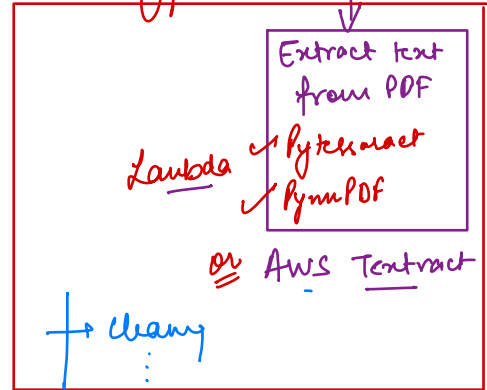 Extract text
from PDF
Lambda
Pytessaract
PymuPDF
or AWS Textract